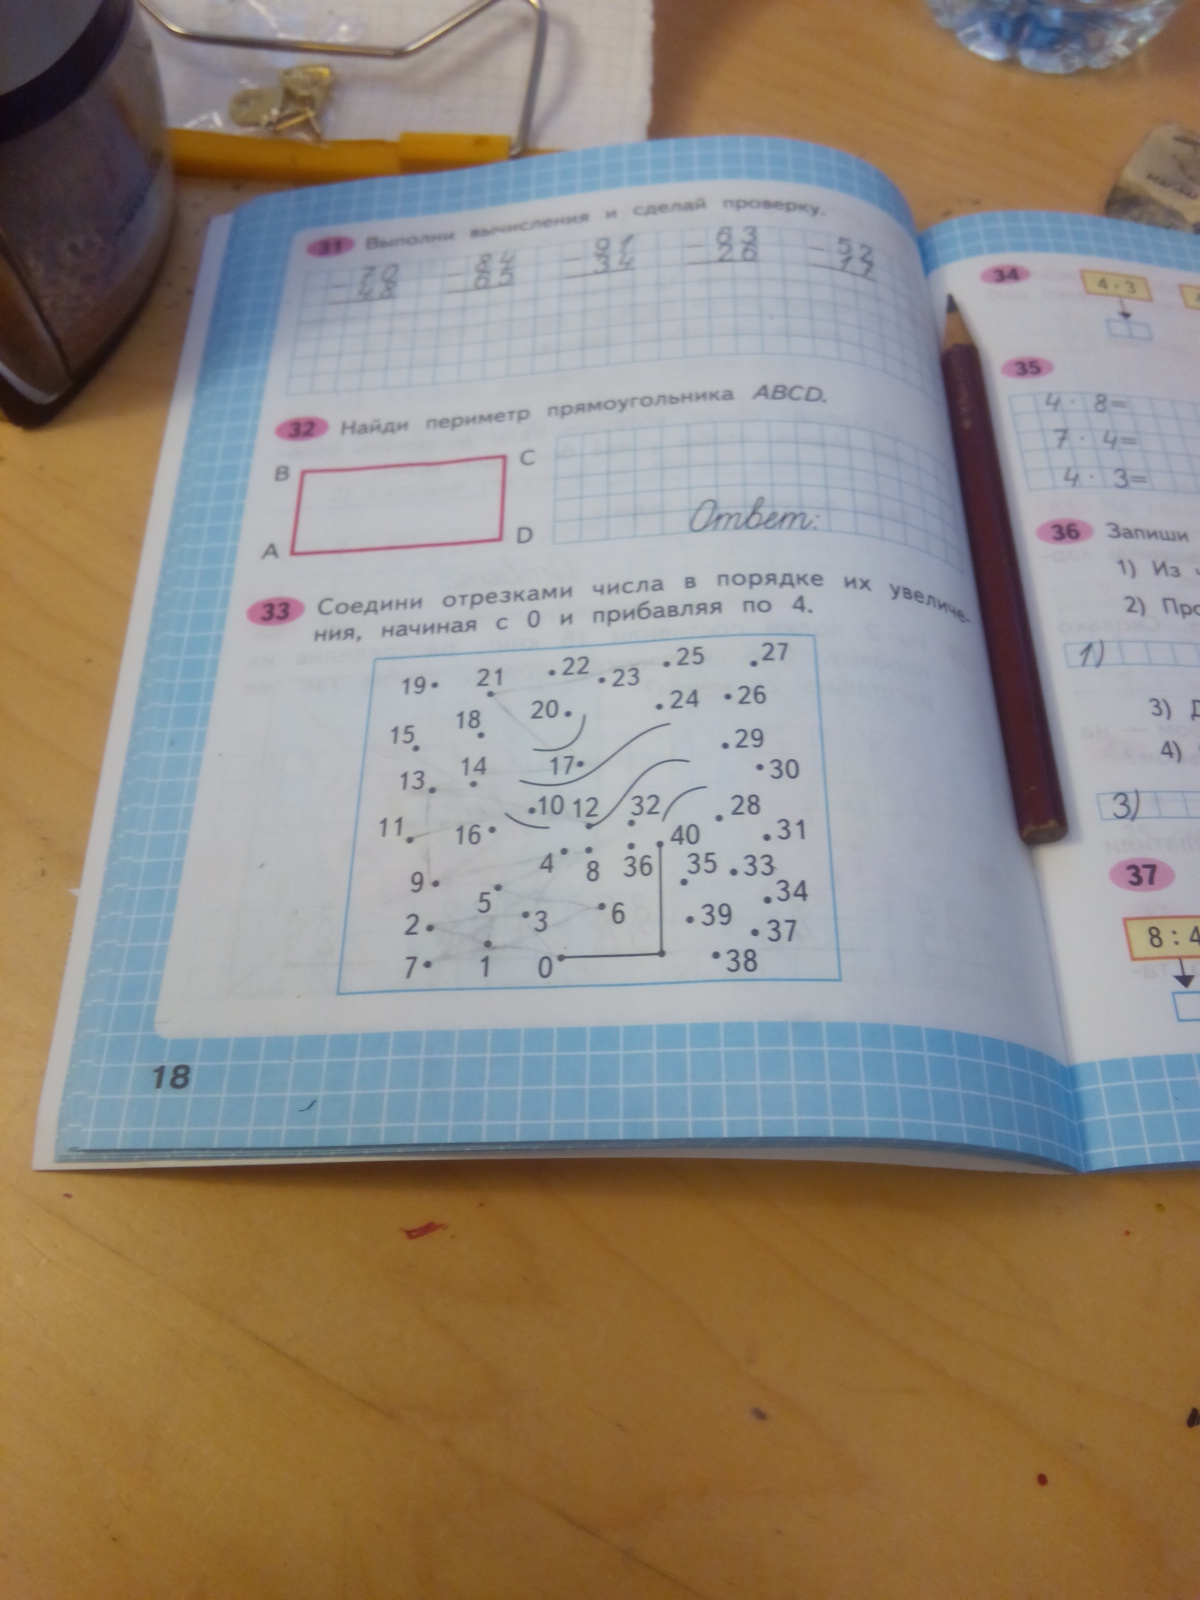 31 Выполни вычисления и сделай проверку.
70 84 91 63 52
- 48 - 65 - 34 - 26 - 17
32 Найди периметр прямоугольника ABCD.
B C
A D
Ответ:
33 Соедини отрезками числа в порядке их увеличе-
ния, начиная с 0 и прибавляя по 4.
19 21 22 23 25 27
18 20 24 26
15 29
13 14 17 30
11 16 10 12 32 28
40 31
9 4 8 36 35 33
5 34
2 3 6 39 37
7 1 0 38
18
34 4 · 3
35
4 · 8=
7 · 4=
4 · 3=
36 Запиши
1) Из
2)
1)
3)
4)
3)
37
8 : 4